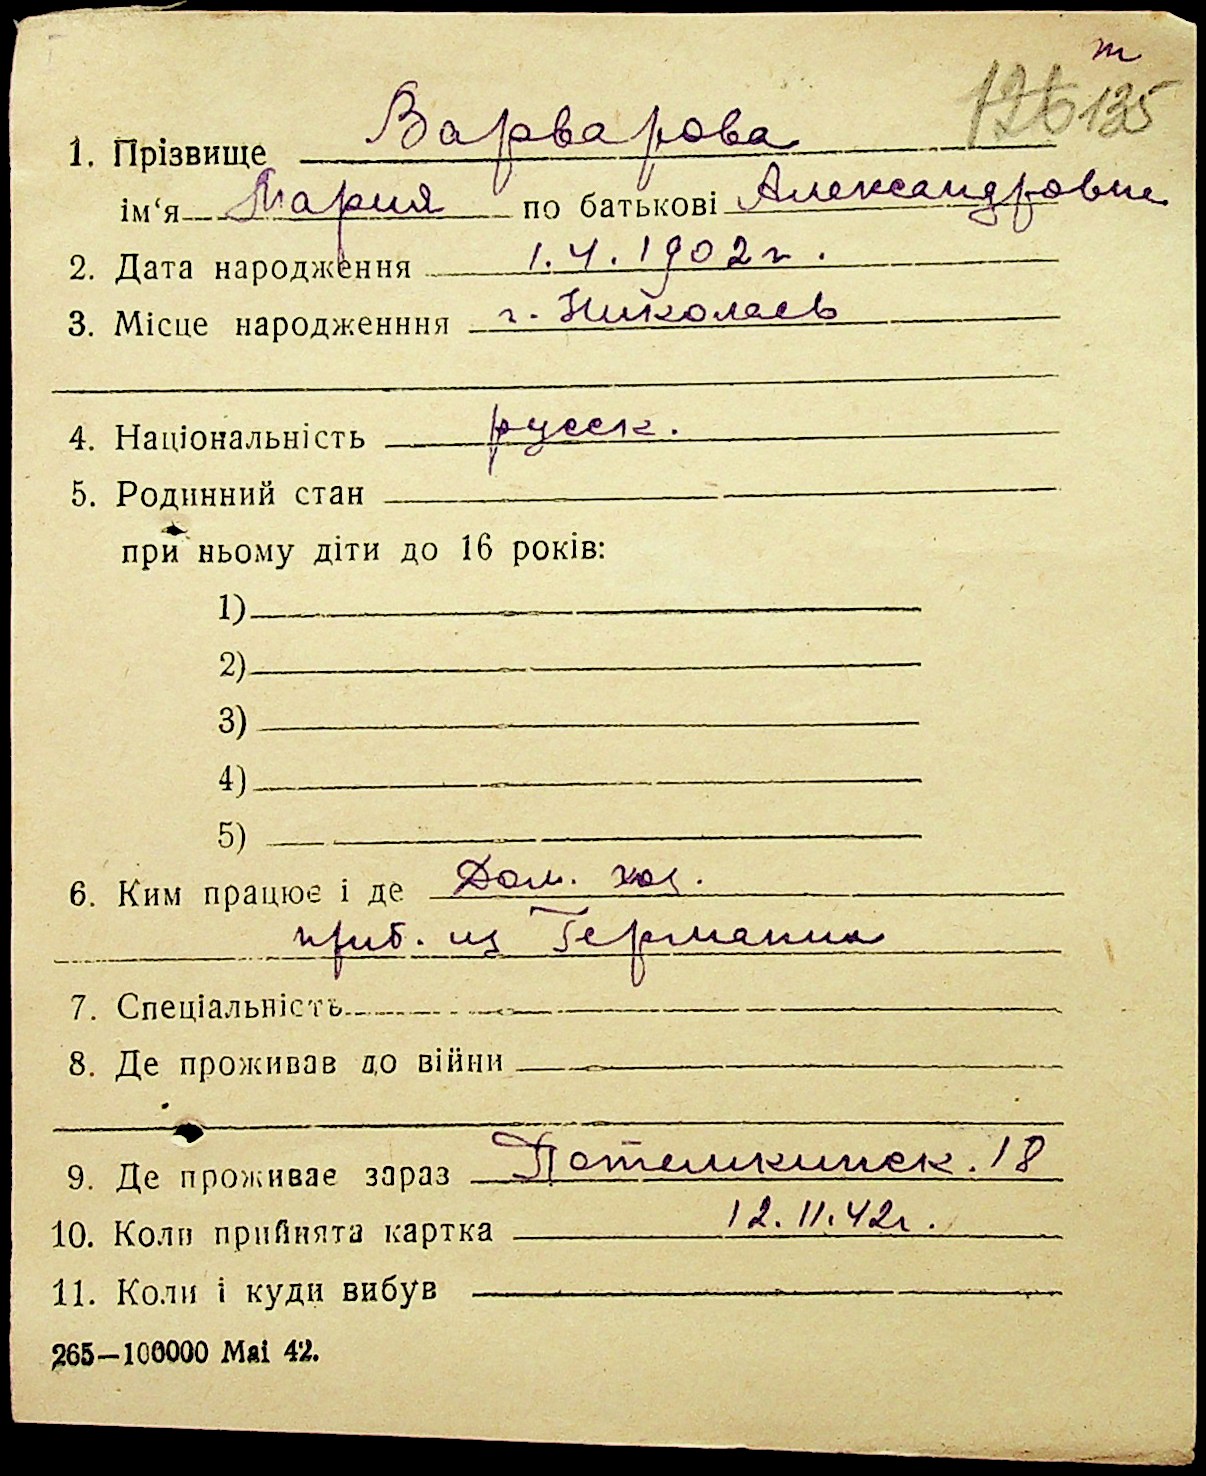 т
126 135
1. Прізвище Варварова
ім‘я Мария по батькові Александровна
2. Дата народження 1.4.1902 г.
3. Місце народженння г. Николаев
4. Національність русск.
5. Родинний стан
при ньому діти до 16 років:
1)
2)
3)
4)
5)
6. Ким працює і де Дом. хоз.
приб. из Германии
7. Спеціальність
8. Де проживав до війни
9. Де проживає зараз Потемкинск. 18
10. Коли прийнята картка 12.11.42 г.
11. Коли і куди вибув
265—100000 Mai 42.